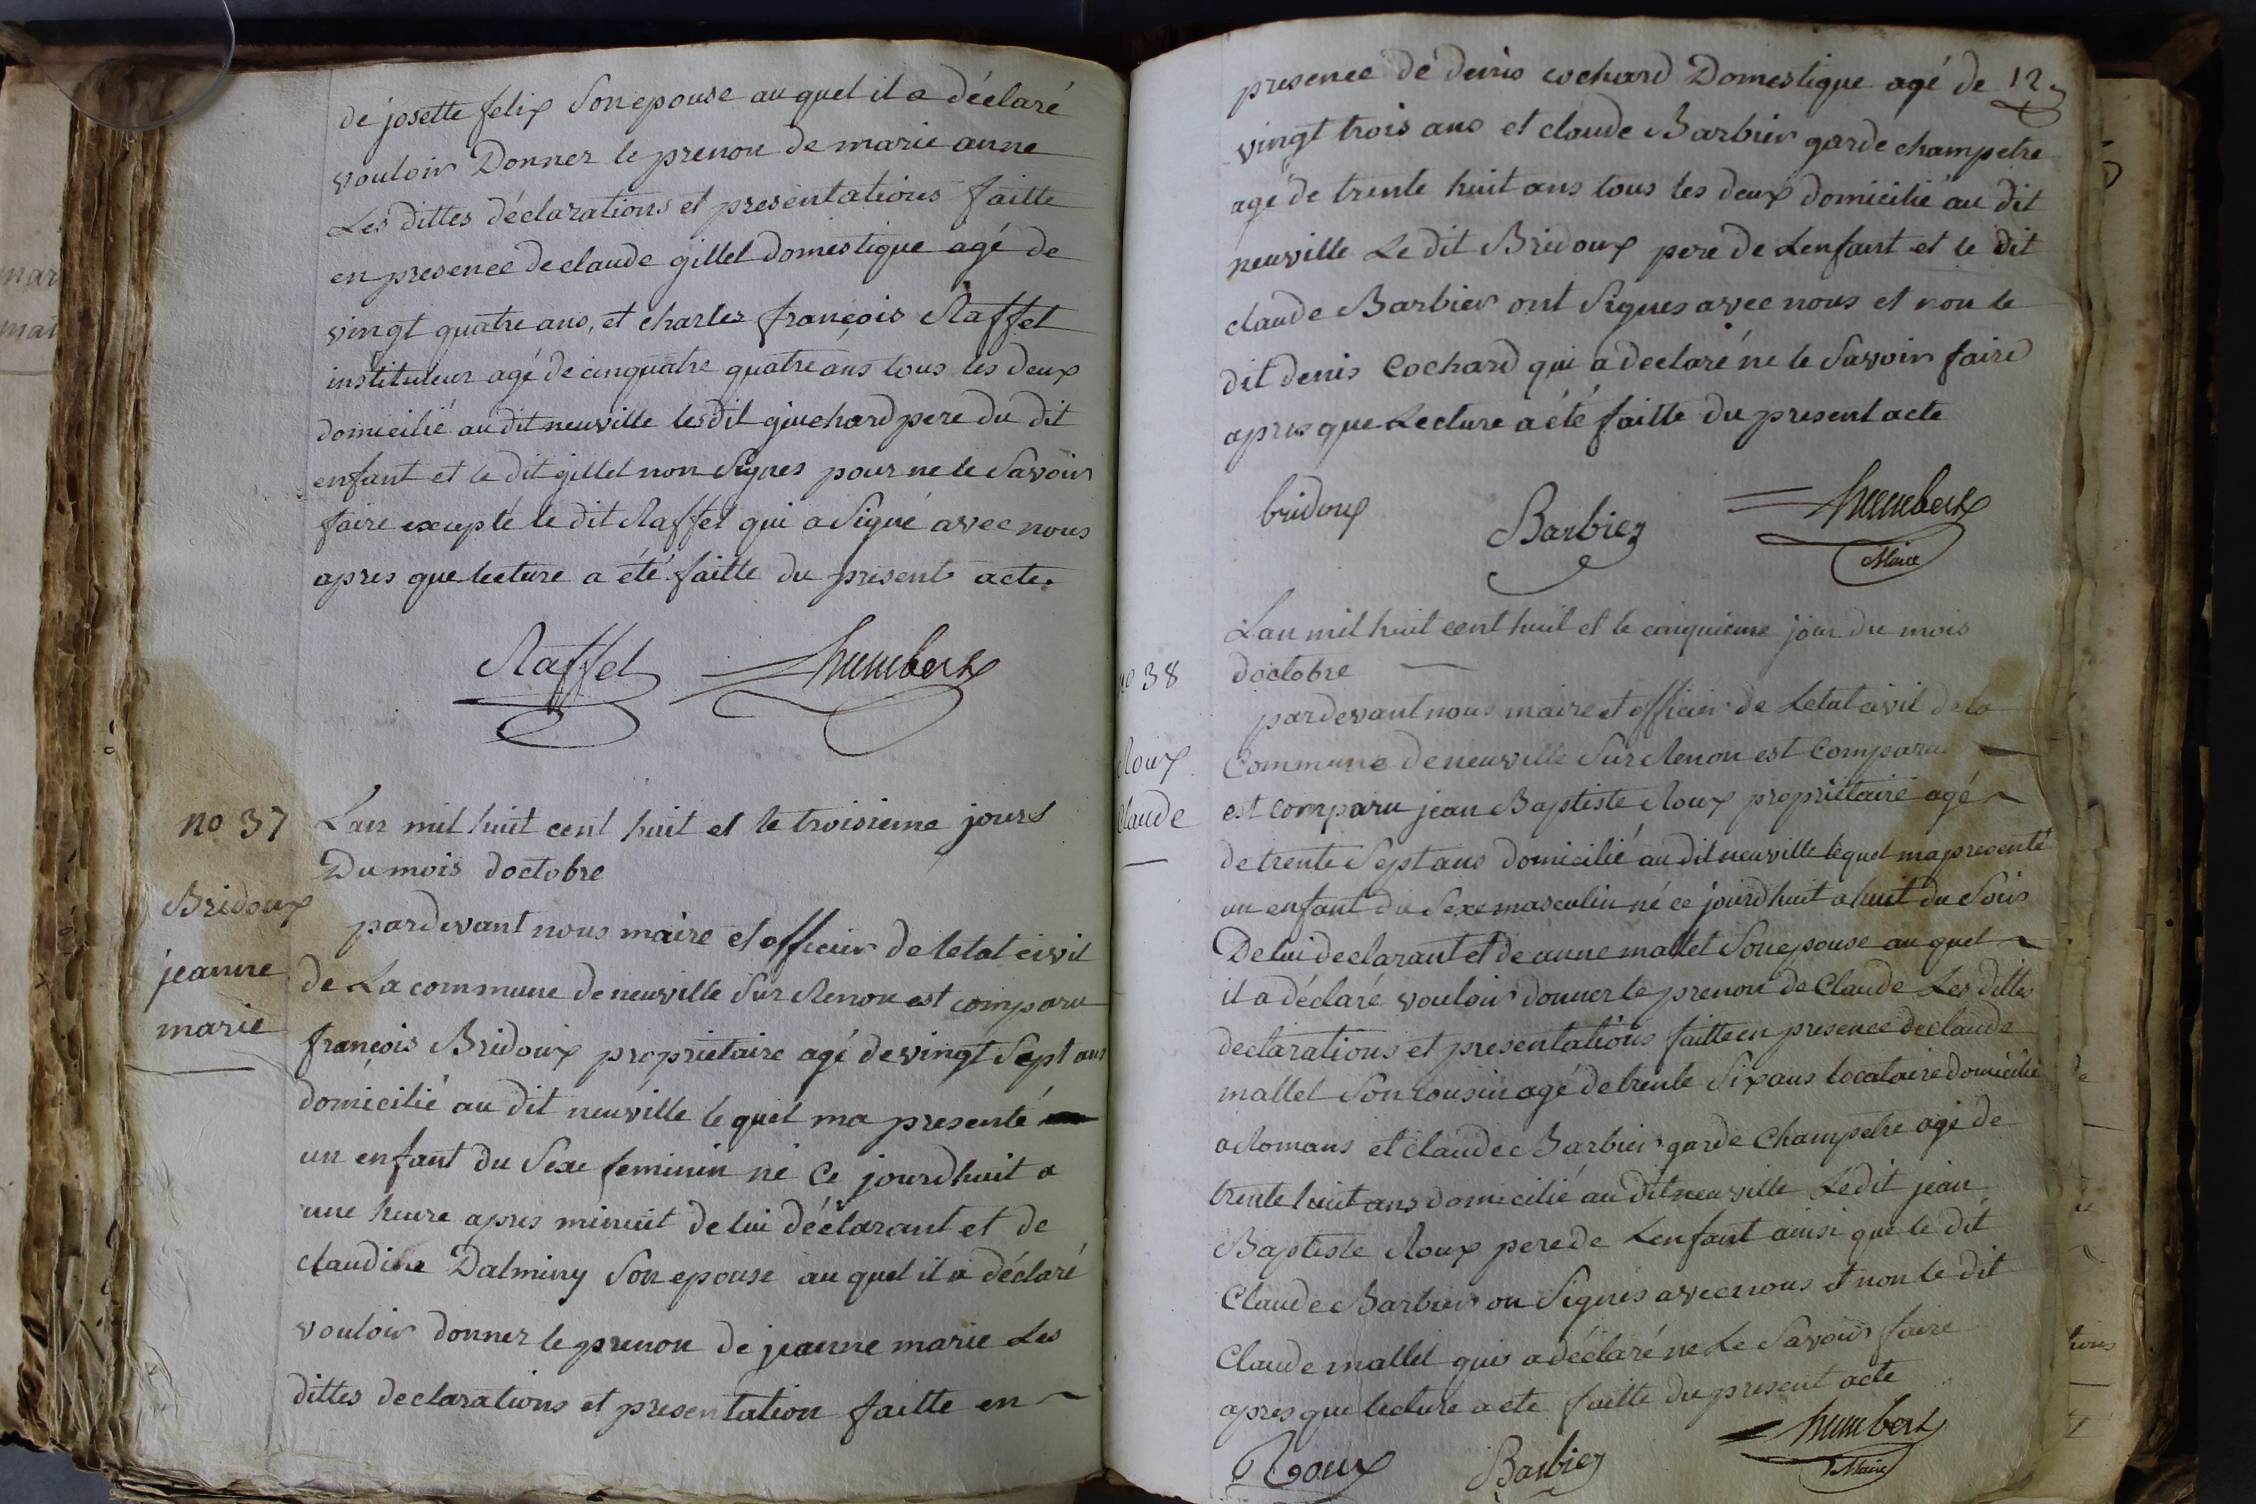 de josette felix Son epouse au quel il a déclaré
vouloir Donner le prenon de marie anne
Les dittes déclarations et presentations faitte
en presence de claude gillet domestique agé de
vingt quatre ans, et charles françois Raffet
instituteur agé de cinquatre quatre ans tous les deux
domicilié au dit neuville le dit guichard pere du dit
enfant et le dit gillet non Signes pour ne le Savoir
faire excepté le dit Raffet qui a Signé avec nous
apres que lecture a été faitte du present acte.
Raffet humbert
no 37
Bridoux
jeanne
marie
Lan mil huit cent huit et le troisieme jours
Du mois doctobre
pardevant nous maire et officier de letat civil
de La commune de neuville Sur Renon est comparu
françois Bridoux proprietaire agé de vingt Sept ans
domécilié au dit neuville le quel ma presenté
un enfant du Sexe feminin né ce jourdhuit a
une heure apres minuit de lui déclarant et de
claudine Dalminy Son epouse au quel il a déclaré
vouloir donner le prenon de jeanne marie Les
dittes declarations et presentation faitte en
12
presence de denis cochard Domestique agé de
vingt trois ans et claude Barbier garde champetre
agé de trente huit ans tous les deux domicilié au dit
neuville Le dit Bridoux pere de Lenfant et le dit
claude Barbier ont Signes avec nous et non le
dit denis Cochard qui a declaré ne le Savoir faire
apres que Lecture a été faitte du present acte
bridoux Barbier humbert
Maire
no 38
Roux
Claude
Lan mil huit cent huit et le cinquieme jour du mois
doctobre
pardevant nous maire et officier de Letat civil de la
Commune de neuville Sur Renon est Comparu
est comparu jean Baptiste Roux propriètaire agé
de trente Sept ans domicilié au dit neuville lequel ma presenté
un enfant du Sexe masculin né ce jourdhuit a huit du Soir
De lui declarant et de anne mallet Son epouse au quel
il a déclaré vouloir donner le prenon de Claude Les dittes
declarations et presentations faitte en presence de claude
mallet Son cousin agé de trente Six ans locataire domicilié
a Romans et claude Barbier garde Champetre agé de
trente huit ans domicilié au dit neuville Le dit jean
Baptiste Roux pere de Lenfant ainsi que le dit
Claude Barbier on Signés avec nous et non le dit
Claude mallet qui a déclaré ne Le Savoir faire
apres que lecture a ete faitte du present acte
Roux Barbier humbert
Maire